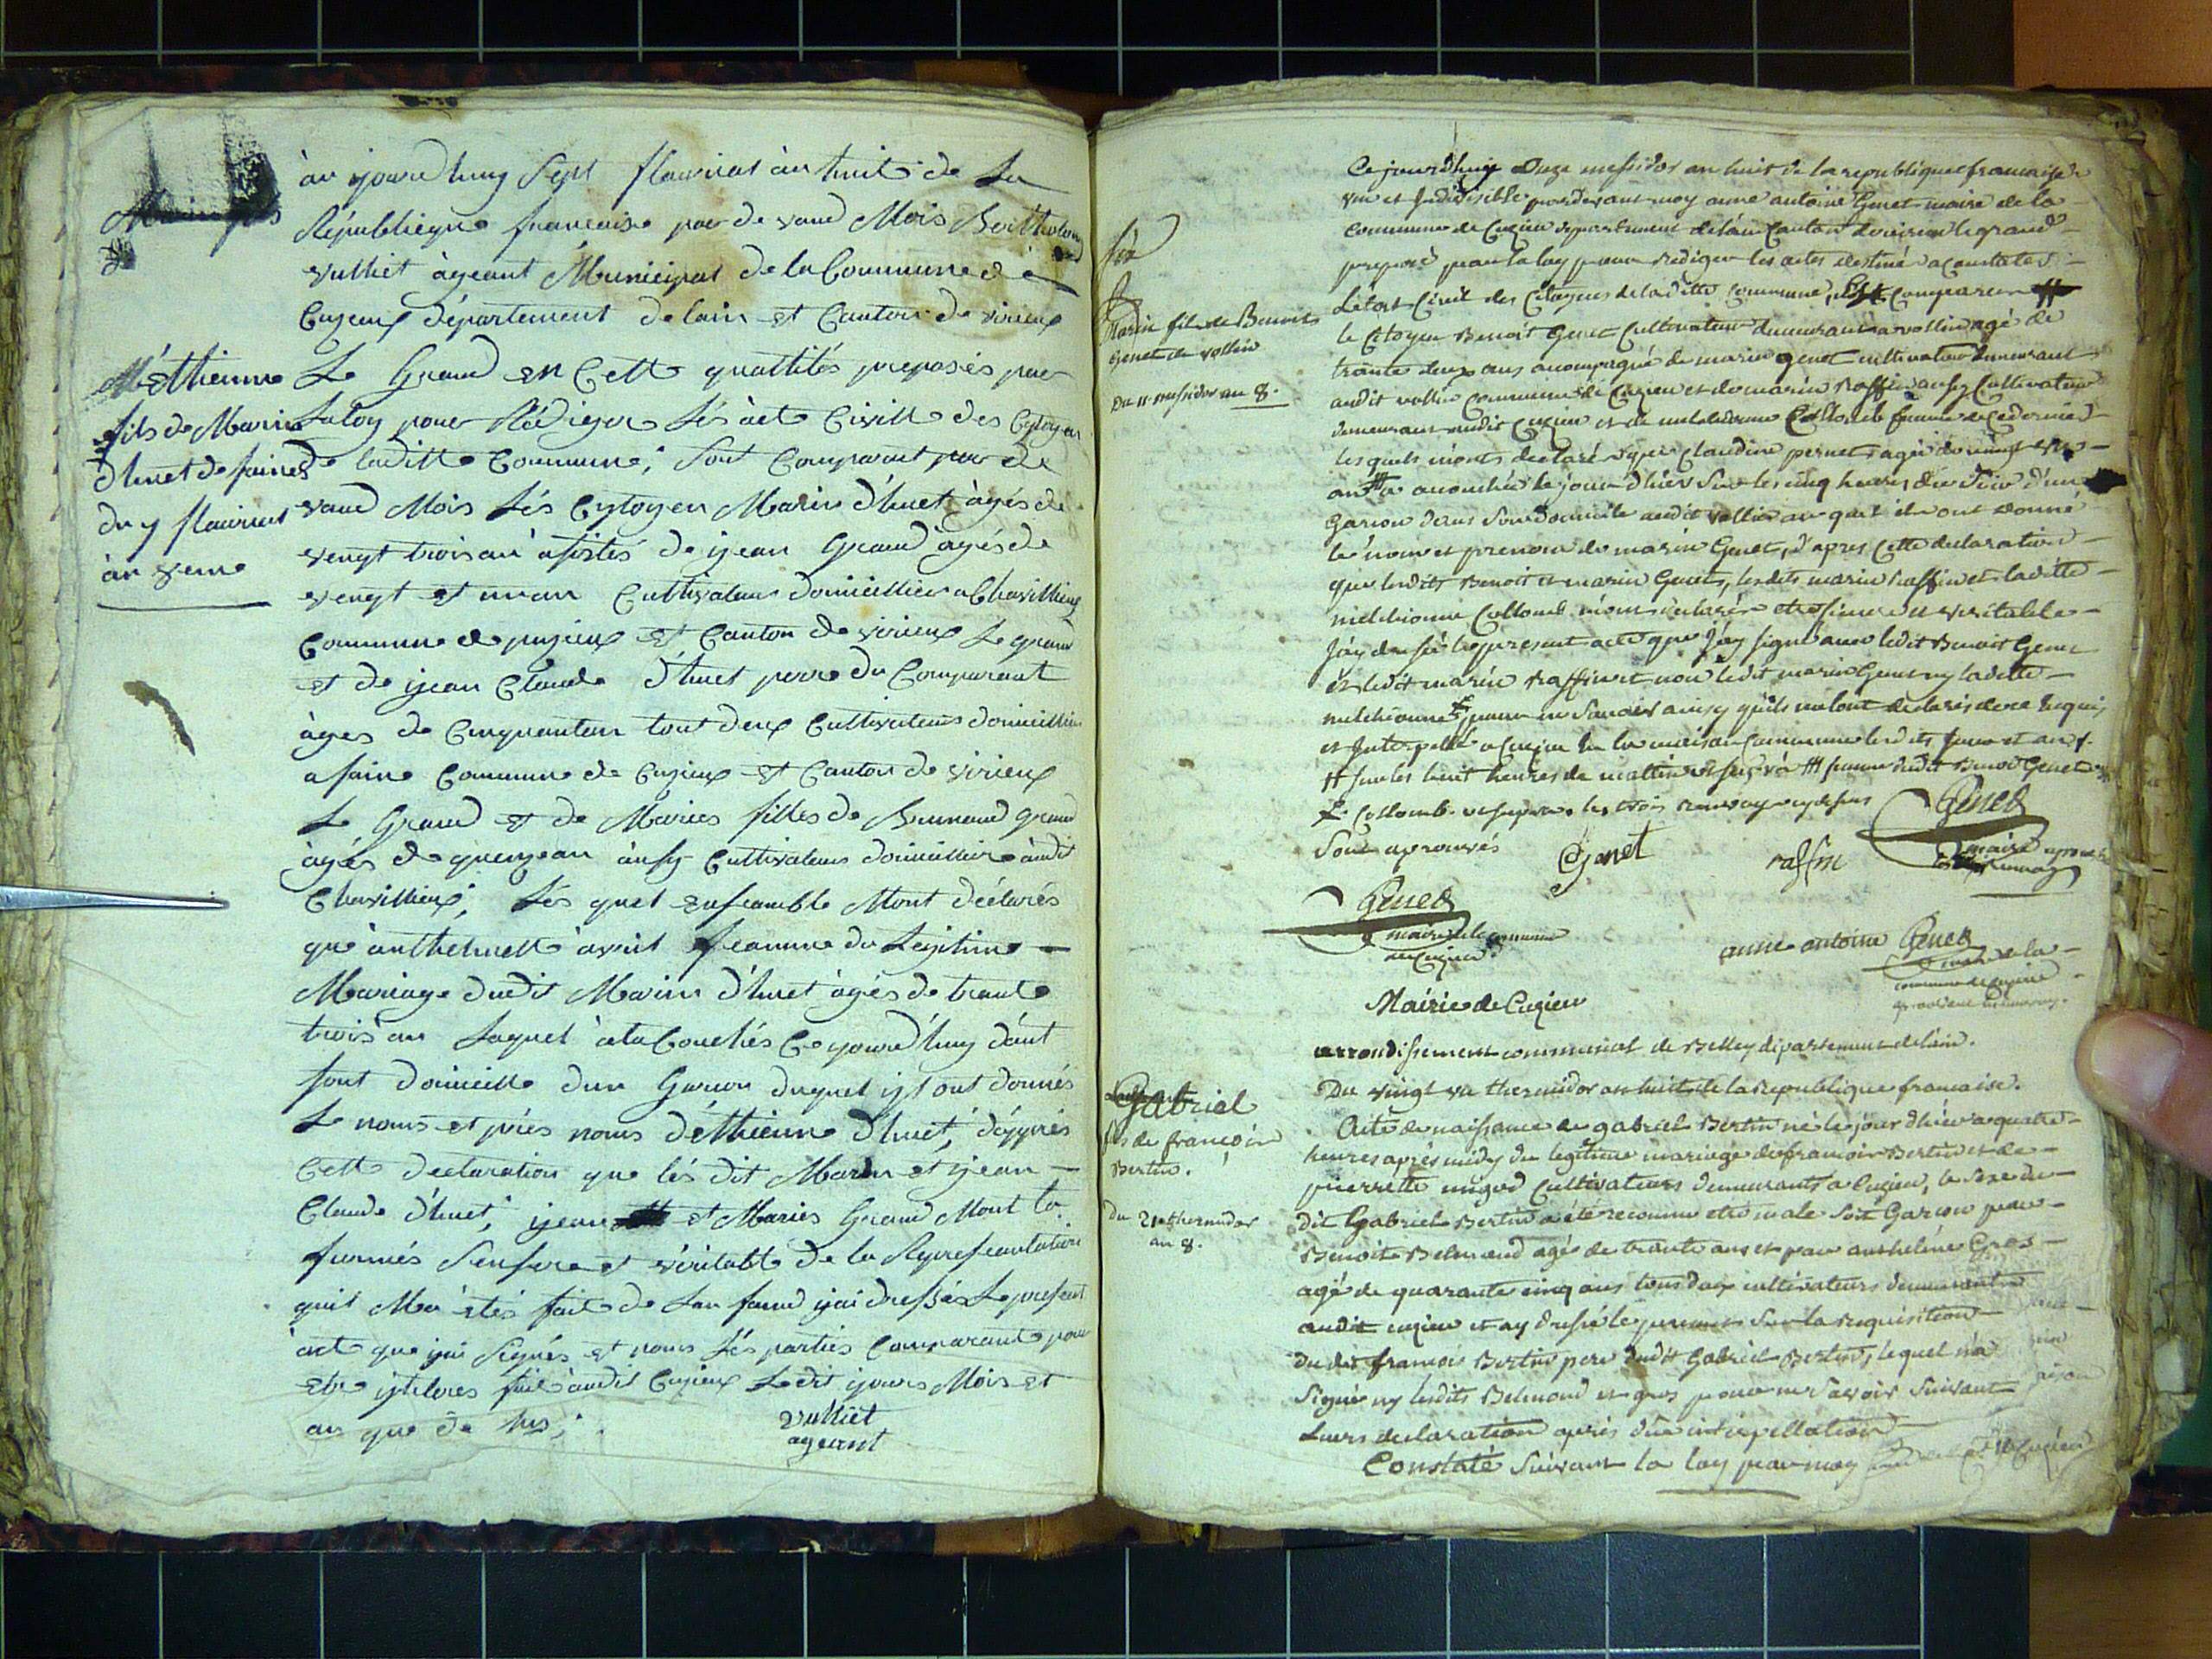 M'éthienne
fils de Marin
d'huet de faines
du 7 flaurieal
àn

àu ijourdhuy Sept flaurieal àn huit de La
République francaise par de vand Mois Berthelomy
vulliet àgeant Municipal de la Commune de
Cuzieux département de lain et Canton de virieux
Le Grand en Cette quallités preposés par
La loy pour Rédiger Lés àcte Civill des Cytoyen
de laditte Commune; sont Comparent par de
vand Mois Lés Cytoyen Marin d'huet àgés de
vengt trois an' asistés de ijean Grand àgés de
vengt et un an Cultivateur domicillier a Chavillieux
Commune de pugieux et Canton de virieux Le grand
et de ijean Claude d'huet perre du Comparent
àges de Cinquantan tout deux Cultivateurs domicillier
a faine Commune de Cuzieux et Canton de virieux
Le Grand et de Maries filles de Grand
àgés de quenzean ausy Cultivateur domicillier àudit
Chavillieux; Lés quel ensamble Mont déclarés
que anthelmett avril feamme du Legitime
Mariage dudit Marin d'huet àgés de trante
trois an Laquel àtacouchés Ce yourd'huy dant
sont domicille dun Garcon duquel ijl ont donnés
Le noms et prés noms d'éthienne d'huet; d'apprés
Cette declaration que lés dit Marin et ijean
Claude d'huet; ijean et Maries Grand Mont
furmés Sensere et véritable de la Represeantation
quil Ma étés fait de Lan fand ijai dressés Le present
àct que ijai Signés et noms Lés parties Comparant pour
etre ijteleres fait àudit Cuzieux Ledit ijours Mois et
an que de sus;
vulliet
ageant

Marin fils de Benoit
Genet de vollin
Du 11 messidor an 8.

Cejourdhuy Onze messidor an huit de la republique francaise
une et Indivisible pardevant moy anne antoine Genet maire de la
commune de Cuzieu departement de lain Canton de virieu le grand
preposé par la loy pour rediger les actes destiné a constater
Létat Civil des Citoyens de laditte Commune, Est Comparu #
le Citoyen Benoit Genet Cultivateur demeurant a vollin agé de
trante deux ans acompagné de marin genet cultivateur demeurant
audit vollin commune de Cuzieu et de marin raffin ausy Cultivateur
demeurant audit Cuzieu et de Collomb femme de
les quels m'ont declaré que Claudine pernet agée de vingt
an a acouchée le jour d'hier Sur les cinq heures du Soir d'un
Garcon dans Son domicile audit vollin au quel ils ont donné
le nom et prenom de marin Genet, d'apres Cette declaration
que lesdits Benoit et marin Genet, lesdits marin raffin et laditte
melchionne Collomb m'ont declarés etre sincere et veritable
J'ay dressé le present acte que J'ay signé avec ledit Benoit Genet
et ledit marin raffin et non ledit marin Genet ny ladite
melchionne pour ne Savoir ainsy qu'ils m'ont declarés de ce requis
et Interpellé a Cuzieu En la maison Commune lesdits jour et an
# sur les huit heures de mattin ### femme dudit Benoit Genet
Collomb. les trois renvoy cy dessus
Sont aprouvés
Genet
raffin
Genet
maire
Genet
maire de la commune
de Cuzieu.
anne antoine Genet
maire de la
commune de Cuzieu

Mairie de Cuzieu
arrondissement communal de Belley département de l'ain.
Gabriel
fils de francois
Bertin.
Du 21 thermidor
an 8.
Du vingt un thermidor an huit de la republique francaise.
Acte de naissance de gabriel Bertin né le jour d'hier a quatre
heures après midy du legitime mariage de francois Bertin et de
pierrette migod Cultivateurs demeurants a Cuzieu, le Sexe du
dit Gabriel Bertin a été reconnu etre male Soit Garcon par
Benoit Belmond agé de trante ans et par anthelme Gros
agé de quarante cinq ans tous deux cultivateurs demeurant
audit cuzieu et ay dressé le present Sur la requisition
du dit francois Bertin pere dudit Gabriel Bertin, lequel n'a
Signé ny lesdits Belmond et gros pour ne Savoir Suivant
Leurs declaration après due interpellation
Constaté Suivant la loy par moy